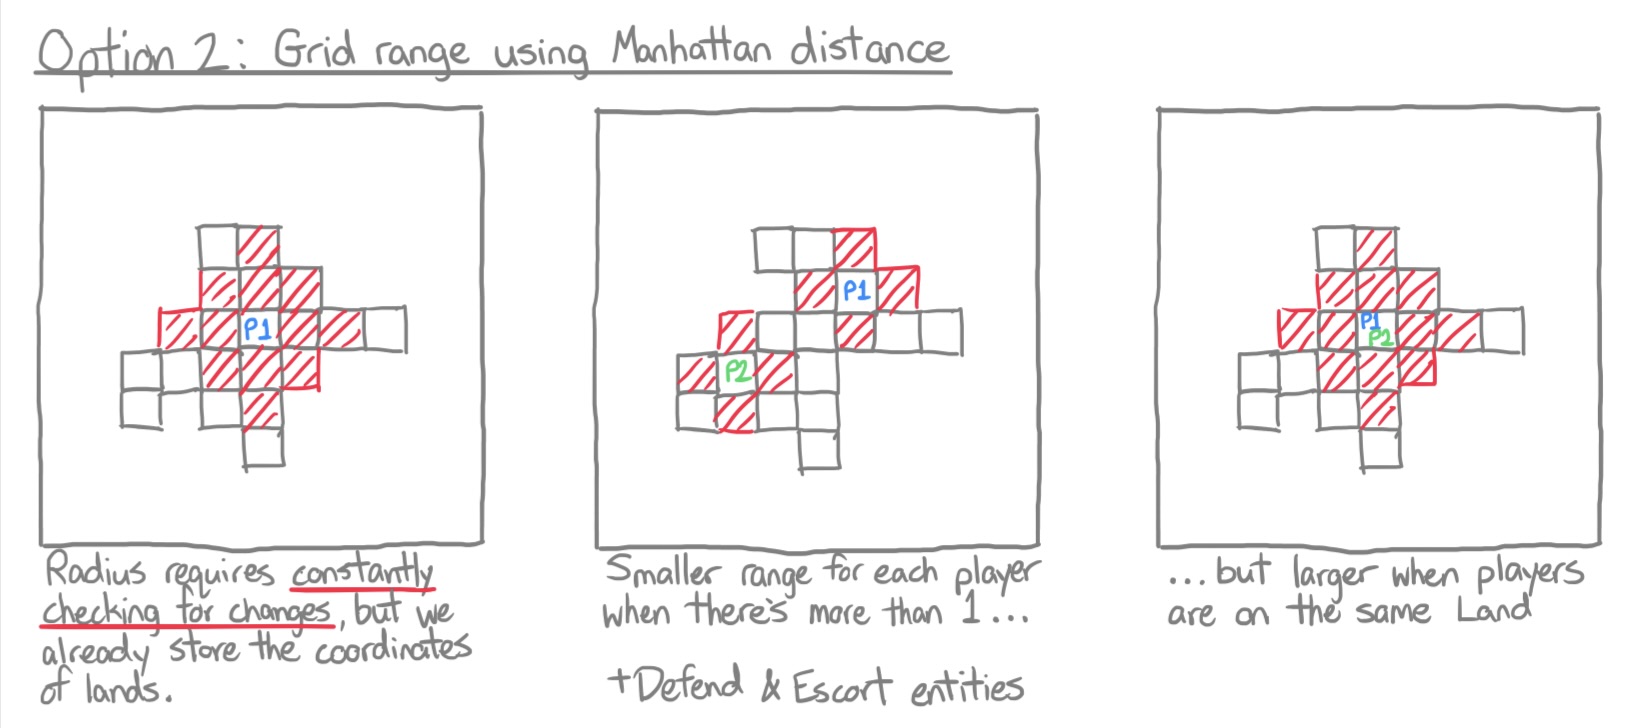 Option 2: Grid range using Manhattan distance
P1
P1
P2
P1
P2
Radius requires constantly
checking for changes, but we
already store the coordinates
of lands.
Smaller range for each player
when there's more than 1...
+Defend & Escort entities
...but larger when players
are on the same Land